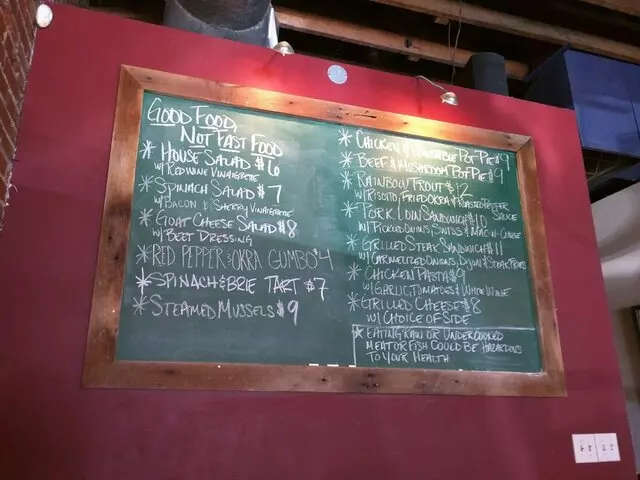 GOOD FOOD,
NOT FAST FOOD
* HOUSE SALAD $6
W/ RED WINE VINAIGRETTE
* SPINACH SALAD $7
W/ BACON & SHERRY VINAIGRETTE
* GOAT CHEESE SALAD $8
W/ BEET DRESSING
* RED PEPPER & OKRA GUMBO $4
* SPINACH & BRIE TART $7
* STEAMED MUSSELS $9
* CHICKEN & VEGETABLE POT PIE $9
* BEEF & MUSHROOM POT PIE $9
* RAINBOW TROUT $12
W/ RISOTTO, FRIED OKRA & ROASTED PEPPER
SAUCE
* PORK LOIN SANDWICH $10
W/ PICKLED ONIONS, SWISS & MAC-N-CHEESE
* GRILLED STEAK SANDWICH $11
W/ CARMELIZED ONIONS, DIJON & STEAK FRIES
* CHICKEN PASTA $9
W/ GARLIC, TOMATOES & WHITE WINE
* GRILLED CHEESE $8
W/ CHOICE OF SIDE
* EATING RAW OR UNDERCOOKED
MEAT OR FISH COULD BE HAZARDOUS
TO YOUR HEALTH